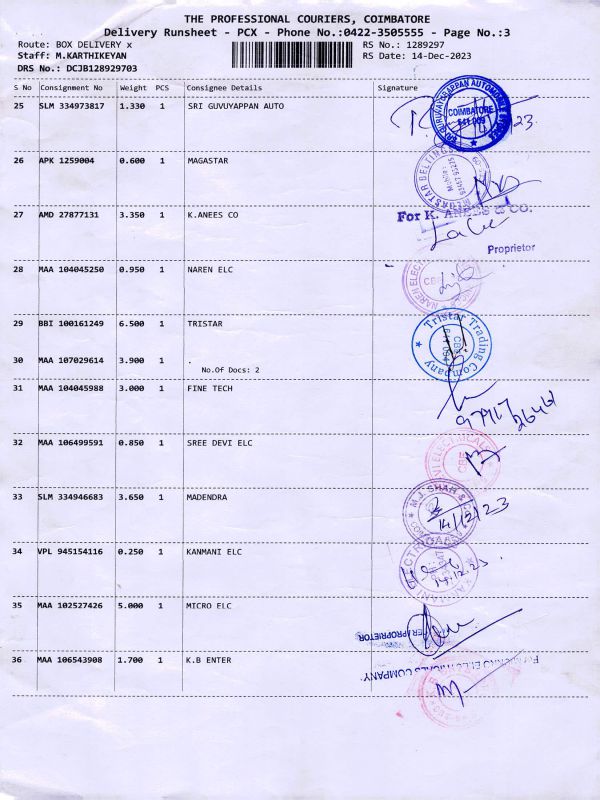 THE PROFESSIONAL COURIERS, COIMBATORE
Delivery Runsheet - PCX - Phone No.:0422-3505555 - Page No.:3
Route: BOX DELIVERY x
RS No.: 1289297
Staff: M.KARTHIKEYAN
RS Date: 14-Dec-2023
DRS No.: DCJB128929703
S No Consignment No Weight PCS Consignee Details Signature
25 SLM 334973817 1.330 1 SRI GUVUYAPPAN AUTO
COIMBATORE
26 APK 1259004 0.600 1 MAGASTAR
27 AMD 27877131 3.350 1 K.ANEES CO
For K. ANEES & CO.
Proprietor
28 MAA 104045250 0.950 1 NAREN ELC
29 BBI 100161249 6.500 1 TRISTAR
Tristar Trading Company
30 MAA 107029614 3.900 1 .
No.Of Docs: 2
31 MAA 104045988 3.000 1 FINE TECH
32 MAA 106499591 0.850 1 SREE DEVI ELC
33 SLM 334946683 3.650 1 MADENDRA
M.J. SHAH &
14/12/23
34 VPL 945154116 0.250 1 KANMANI ELC
14.12.23
35 MAA 102527426 5.000 1 MICRO ELC
PROPRIETOR
36 MAA 106543908 1.700 1 K.B ENTER
ELECTRICALS COMPANY